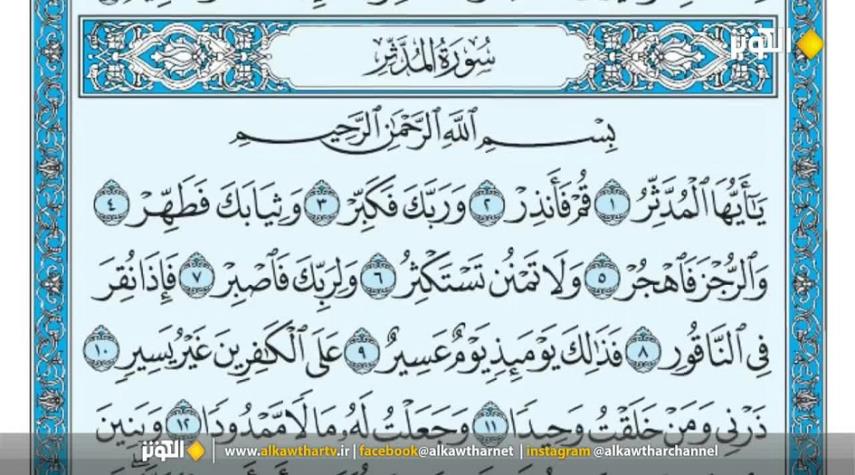 الكوثر
سُورَةُ الْمُدَّثِّرِ
بِسْمِ اللَّهِ الرَّحْمَٰنِ الرَّحِيمِ
يَٰٓأَيُّهَا ٱلۡمُدَّثِّرُ ١ قُمۡ فَأَنذِرۡ ٢ وَرَبَّكَ فَكَبِّرۡ ٣ وَثِيَابَكَ فَطَهِّرۡ ٤
وَٱلرُّجۡزَ فَٱهۡجُرۡ ٥ وَلَا تَمۡنُن تَسۡتَكۡثِرُ ٦ وَلِرَبِّكَ فَٱصۡبِرۡ ٧ فَإِذَا نُقِرَ
فِي ٱلنَّاقُورِ ٨ فَذَٰلِكَ يَوۡمَئِذٖ يَوۡمٌ عَسِيرٌ ٩ عَلَى ٱلۡكَٰفِرِينَ غَيۡرُ يَسِيرٖ ١٠
ذَرۡنِي وَمَنۡ خَلَقۡتُ وَحِيدٗا ١١ وَجَعَلۡتُ لَهُۥ مَالٗا مَّمۡدُودٗا ١٢ وَبَنِينَ
الكوثر www.alkawthartv.ir | facebook@alkawtharnet | instagram @alkawtharchannel